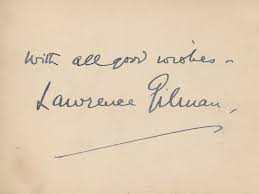 With all good wishes –
Lawrence Gilman,